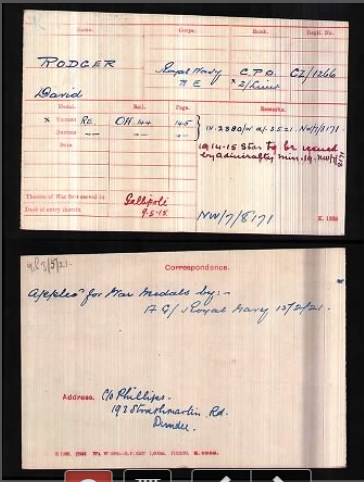 Name. Corps. Rank. Regtl. No.
RODGER Royal Navy C.P.O. CZ/1266
R E x 2/Lieut
David
Medal. Roll. Page. Remarks.
x Victory RE. OH.44 145
British -- -- --
Star 1914-15 Star to be issued
by admiralty min. 19. NW/7/8171
Theatre of War first served in Gallipoli
Date of entry therein 9.5.15.
NW/7/8171
K. 1380
Correspondence.
Applies for War Medals by:-
Royal Navy 12/2/21.
Address. C/o Phillips.
193 Strathmartin Rd.
Dundee.